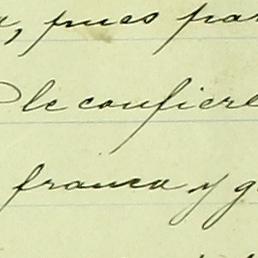 , pues par
le confiere
franca y g